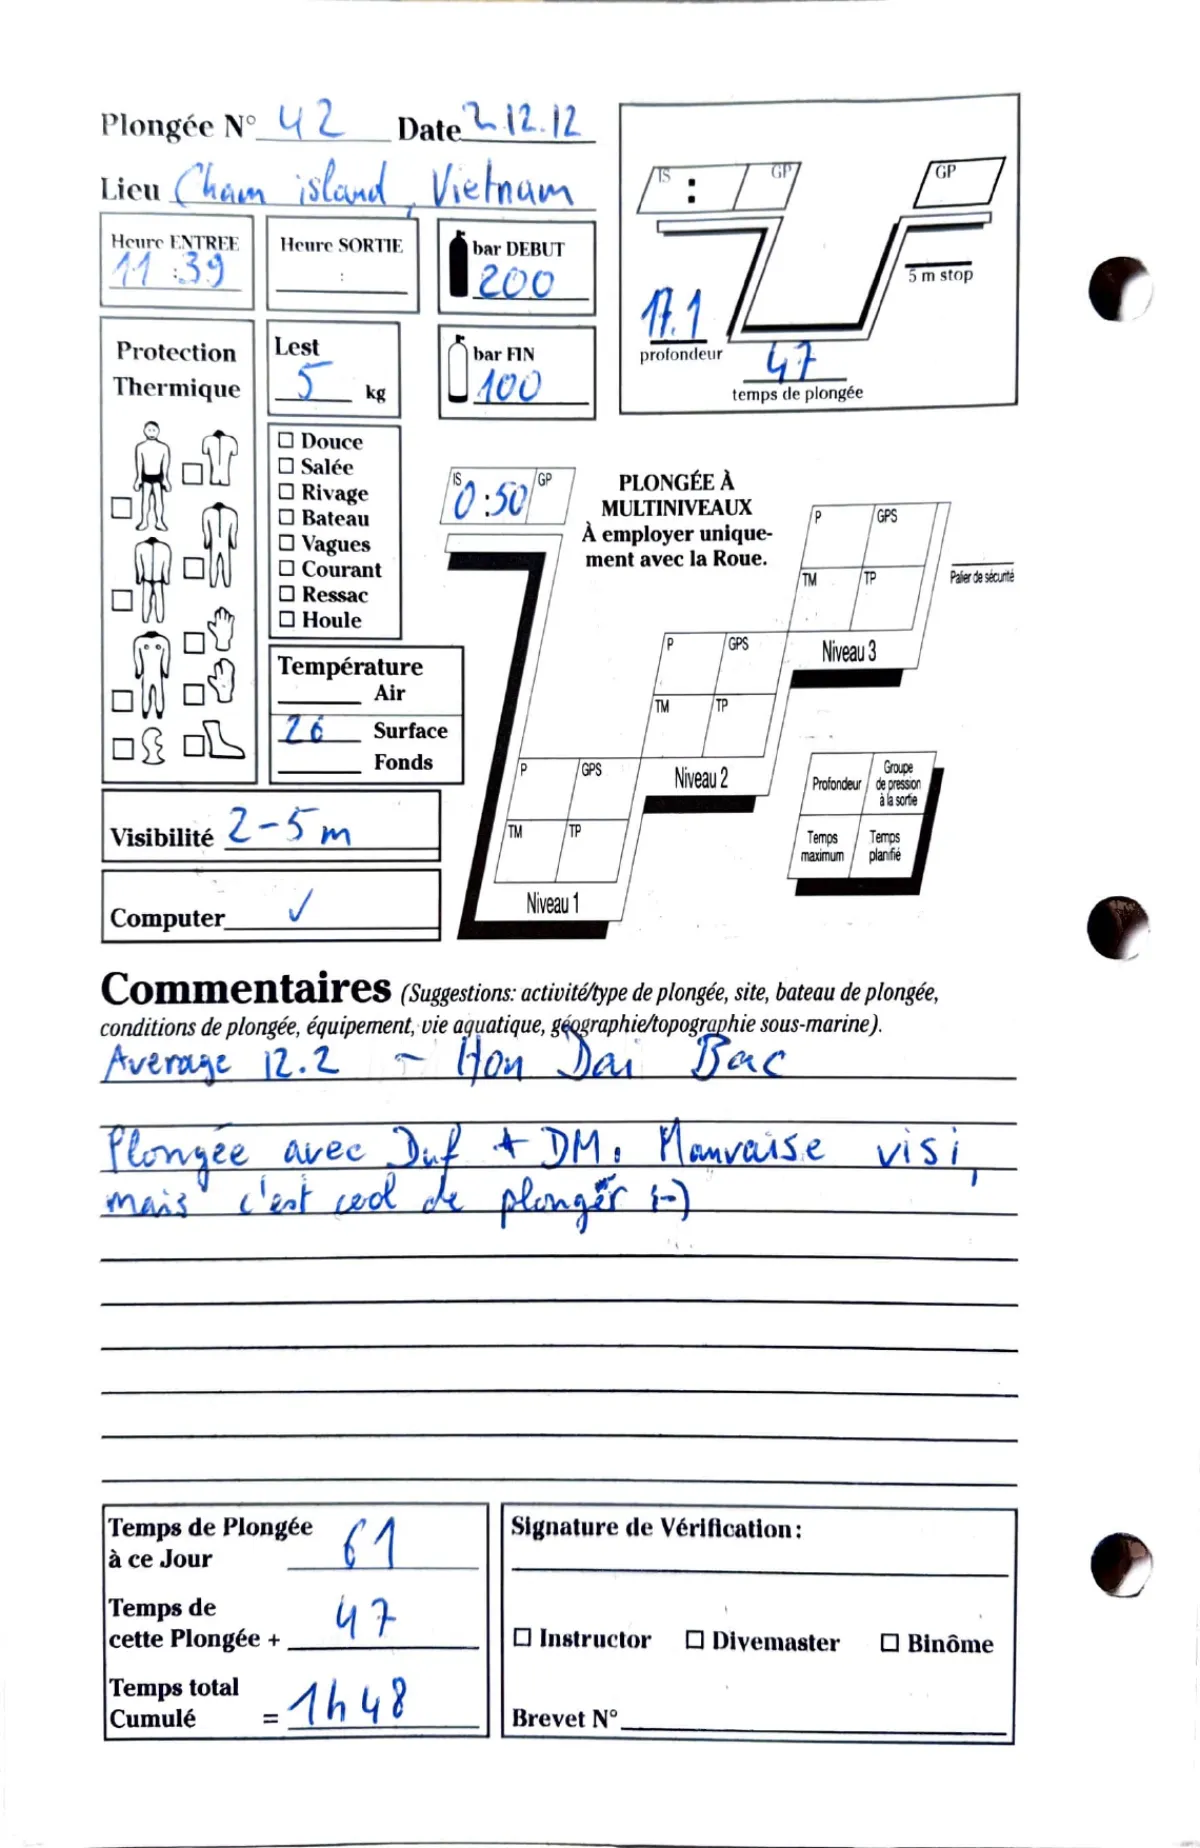 Plongée N° 42 Date 2.12.12
Lieu Cham island, Vietnam
Heure ENTREE
11:39
Heure SORTIE
:
bar DEBUT
200
IS : GP
GP
5 m stop
17.1
profondeur
47
temps de plongée
Protection
Thermique
Lest
5 kg
bar FIN
100
Douce
Salée
Rivage
Bateau
Vagues
Courant
Ressac
Houle
IS GP
0:50
PLONGÉE À
MULTINIVEAUX
À employer unique-
ment avec la Roue.
P GPS
TM TP
Niveau 3
Palier de sécurité
P GPS
TM TP
Niveau 2
P GPS
TM TP
Niveau 1
Profondeur
Groupe
de pression
à la sortie
Temps
maximum
Temps
planifié
Température
Air
26 Surface
Fonds
Visibilité 2-5 m
Computer ✓
Commentaires (Suggestions: activité/type de plongée, site, bateau de plongée,
conditions de plongée, équipement, vie aquatique, géographie/topographie sous-marine).
Average 12.2 ~ Hon Dai Bac
Plongée avec Duf + DM. Mauvaise visi,
mais c'est cool de plonger :-)
Temps de Plongée
à ce Jour 61
Temps de
cette Plongée + 47
Temps total
Cumulé = 1h48
Signature de Vérification:
Instructor Divemaster Binôme
Brevet N°